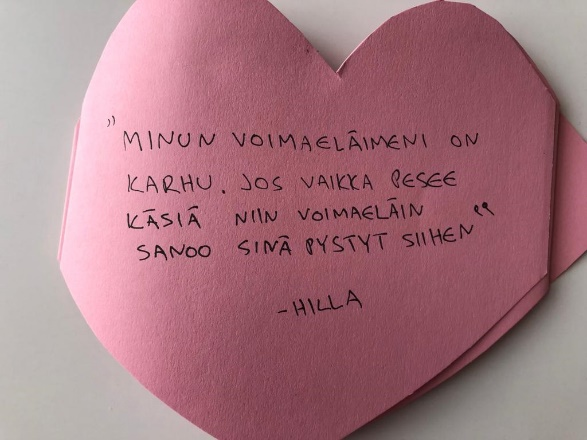 "MINUN VOIMAELÄIMENI ON
KARHU. JOS VAIKKA PESEE
KÄSIÄ NIIN VOIMAELÄIN
SANOO SINÄ PYSTYT SIIHEN"
-HILLA